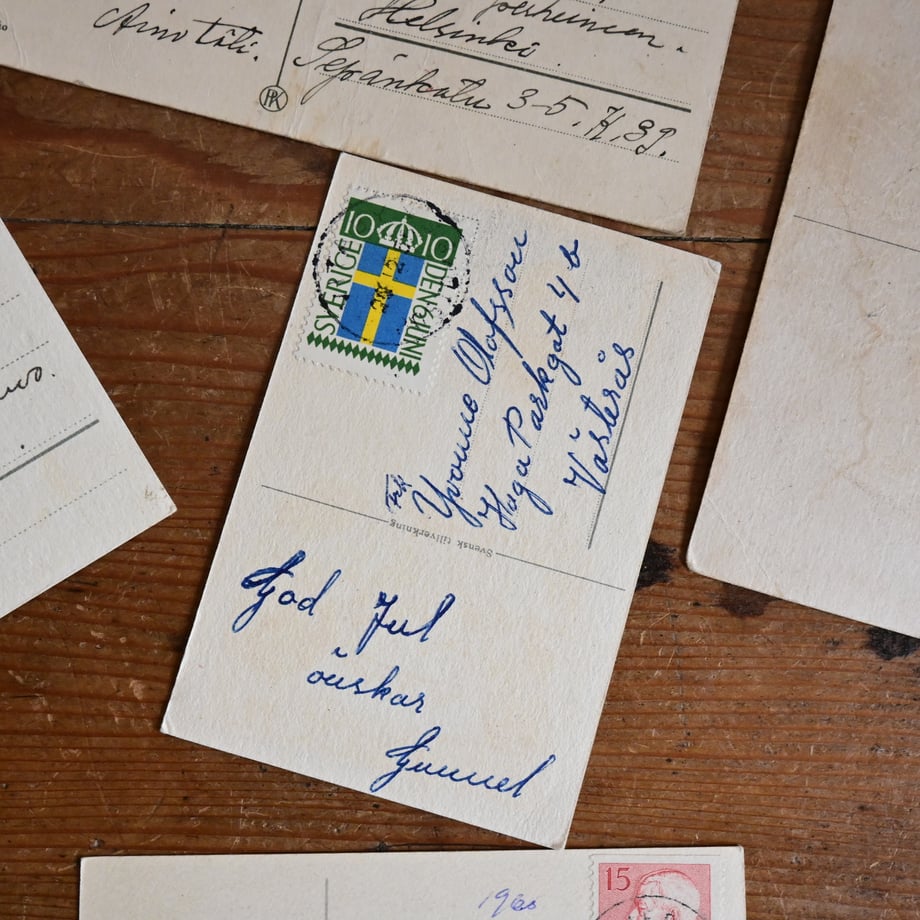 Aino Täti.
Helsinki.
3-5. K, 39.
PK
10 10
SVERIGE
DEN 6 JUNI
Frk
Yvonne Olofsson
Haga Parkgat 4 b
Västerås
Svensk tillverkning
God Jul
önskar
Gunnel
1960
15